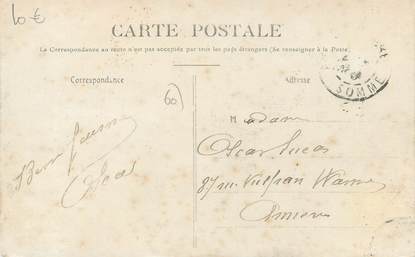 10 €
CARTE POSTALE
La Correspondance au recto n'est pas acceptée par tous les pays étrangers (Se renseigner à la Poste)
Correspondance
Adresse
SOMME
60
Madame
Oscar Lucas
87 Vulfran Warmé
Amiens
Oscar